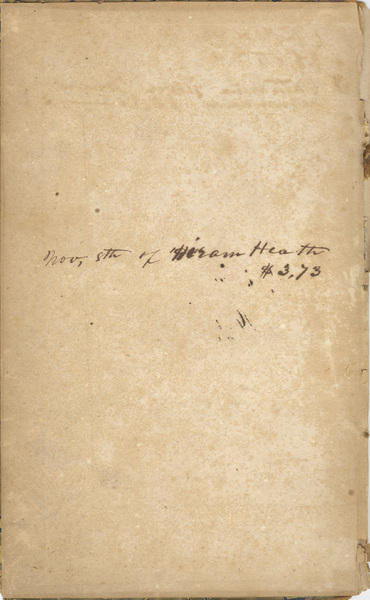 Nov, 5th of Hiram Heath
$3,73